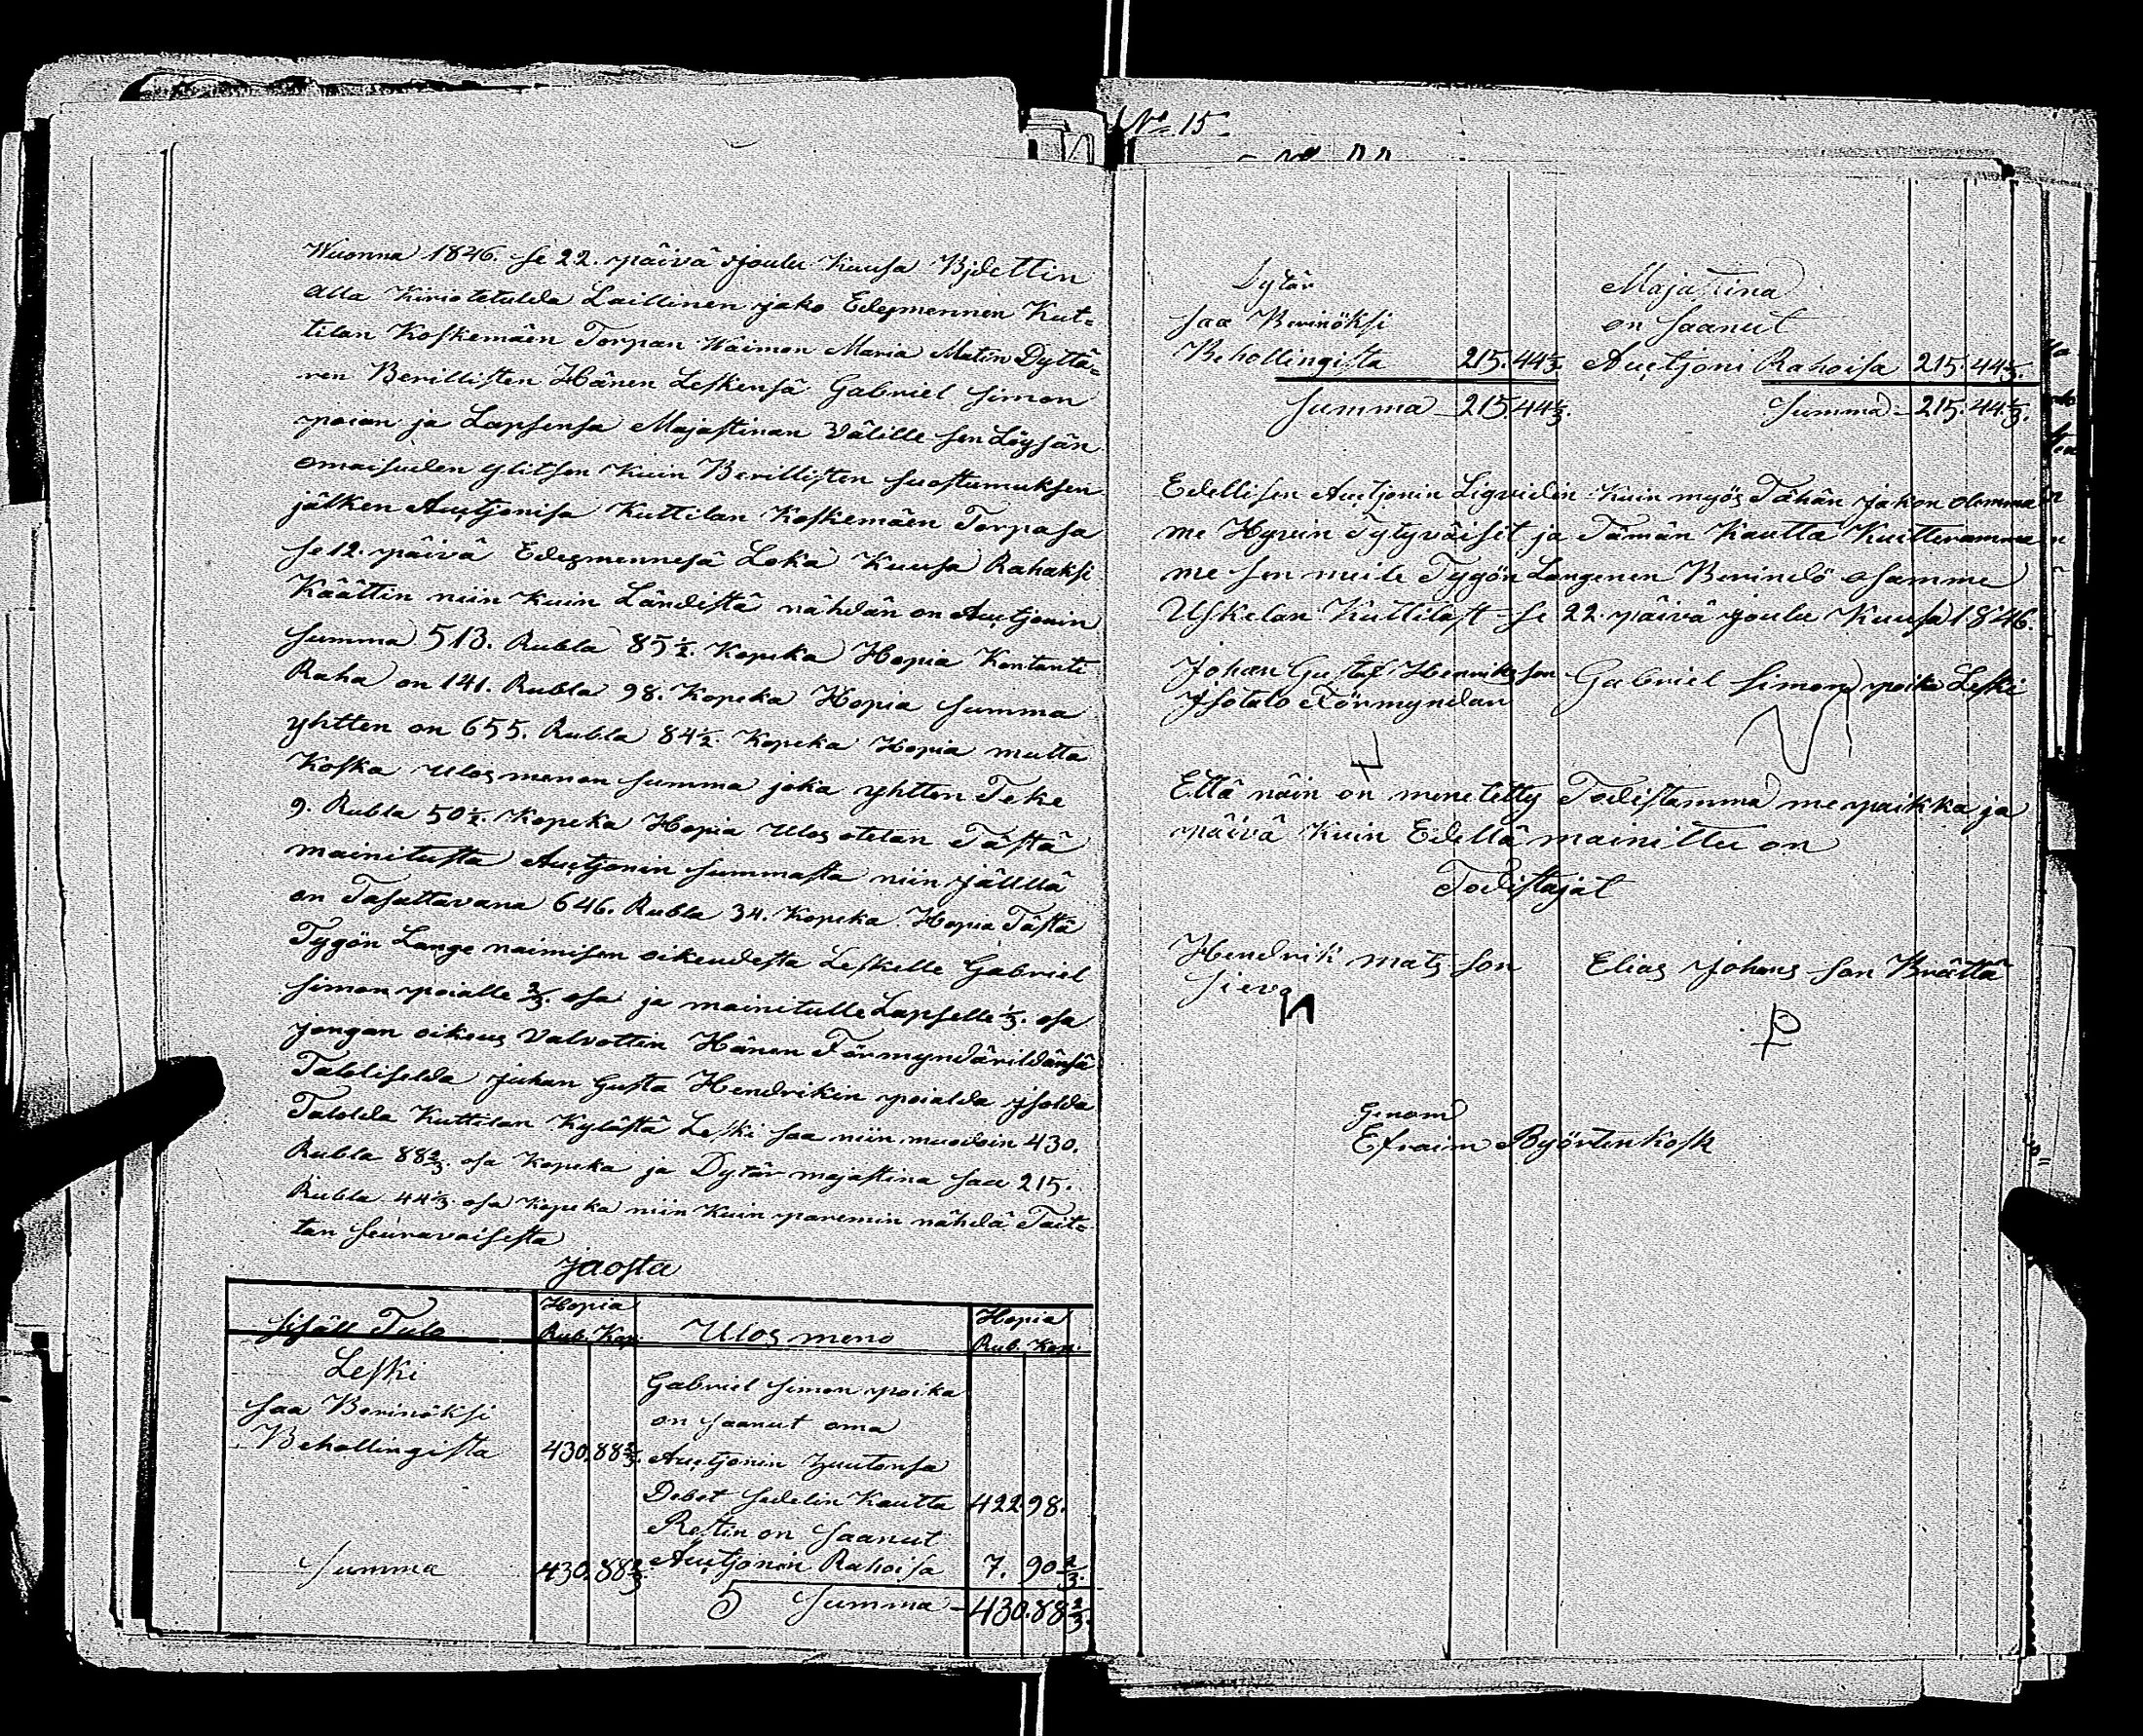 Wuonna 1846. se 22. päivä Joulu Kuusa Bjdettin
alla Kiriotetulda Laillinen jako Edesmennen Kut=
tilan Koskemäen Torpan Waimon Maria Matin Dyttä=
ren Berillisten Hänen Leskensä Gabriel Simon
poian ja Lapsensa Majastinan Välille sen Löysän
omaisuden ylitsen Kuin Berillisten suostumuksen
jälken Auctjonisa Kuttilan Koskemäen Torpasa
se 12. päivä Edesmennesä Loka Kuusa Rahaksi
Käättin niin Kuin Ländistä nähdän on Auctjonin
Summa 513. Rubla 85½. Kopeka Hopia Kontanti
Raha on 141. Rubla 98. Kopeka Hopia Summa
yhtten on 655. Rubla 84½. Kopeka Hopia mutta
Koska Ulosmenon Summa joka yhtten Teke
9. Rubla 50½. Kopeka Hopia Ulos otetan Tästä
mainitusta Auctjonin Summasta niin jällllä
on Tasattavana 646. Rubla 34. Kopeka Hopia Tästä
Tygön Lange naimisen oikeudesta Leskelle Gabriel
Simon poialle ⅔. osa ja mainitulle Lapselle ⅓. osa
jongan oikeus Valvottin Hänen Förmyndärildänsä
Talolliselda Juhan Gusta Hendrikin poialda jsolda
Talolda Kuttilan Kylästä Leski saa niin muodoin 430.
Rubla 88⅔. osa Kopeka ja Dytär majastina saa 215.
Rubla 44⅓. osa Kopeka niin Kuin paremin nähdä Tait=
tan seuravaisesta
jaosta
Sisäll Tulo Hopia Rub. Kop. Ulos meno Hopia Rub. Kop.
Leski
Gabriel Simon poika
saa Berinöksi
on saanut oma
Behollingista 430.88⅔. Auctjonin huutonsa
Debet sedelin Kautta 422.98.
Restin on saanut
Summa 430.88⅔ Auctjonin Rahoisa 7. 90⅔.
5 Summa - 430.88⅔.
No 15
Dytär Majastina
saa Berinöksi on saanut
Behollingista 215.44⅓. Auctjoni Rahoisa 215.44⅓.
Summa - 215.44⅓. Summa - 215.44⅓.
Edellisen Auctjonin Liqvidin Kuin myös Tähän jakon olemma
me Hyvin Tytyväiset ja Tämän Kautta Kuitteramma
me sen meile Tygön Langenen Berindö osamme
Uskelan Kuttilast se 22. päivä joulu Kuusa 1846.
Johan Gustaf Henriksson Gabriel Simon poika Leski
Jsotalo Förmyndari
Että näin on menetetty Todistamma me paikka ja
päivä Kuin Edellä mainittu on
Todistajat
Hendrik mats son Elias Johans son Brättä
Sieva
Genom
Efraim Byörtenkosk